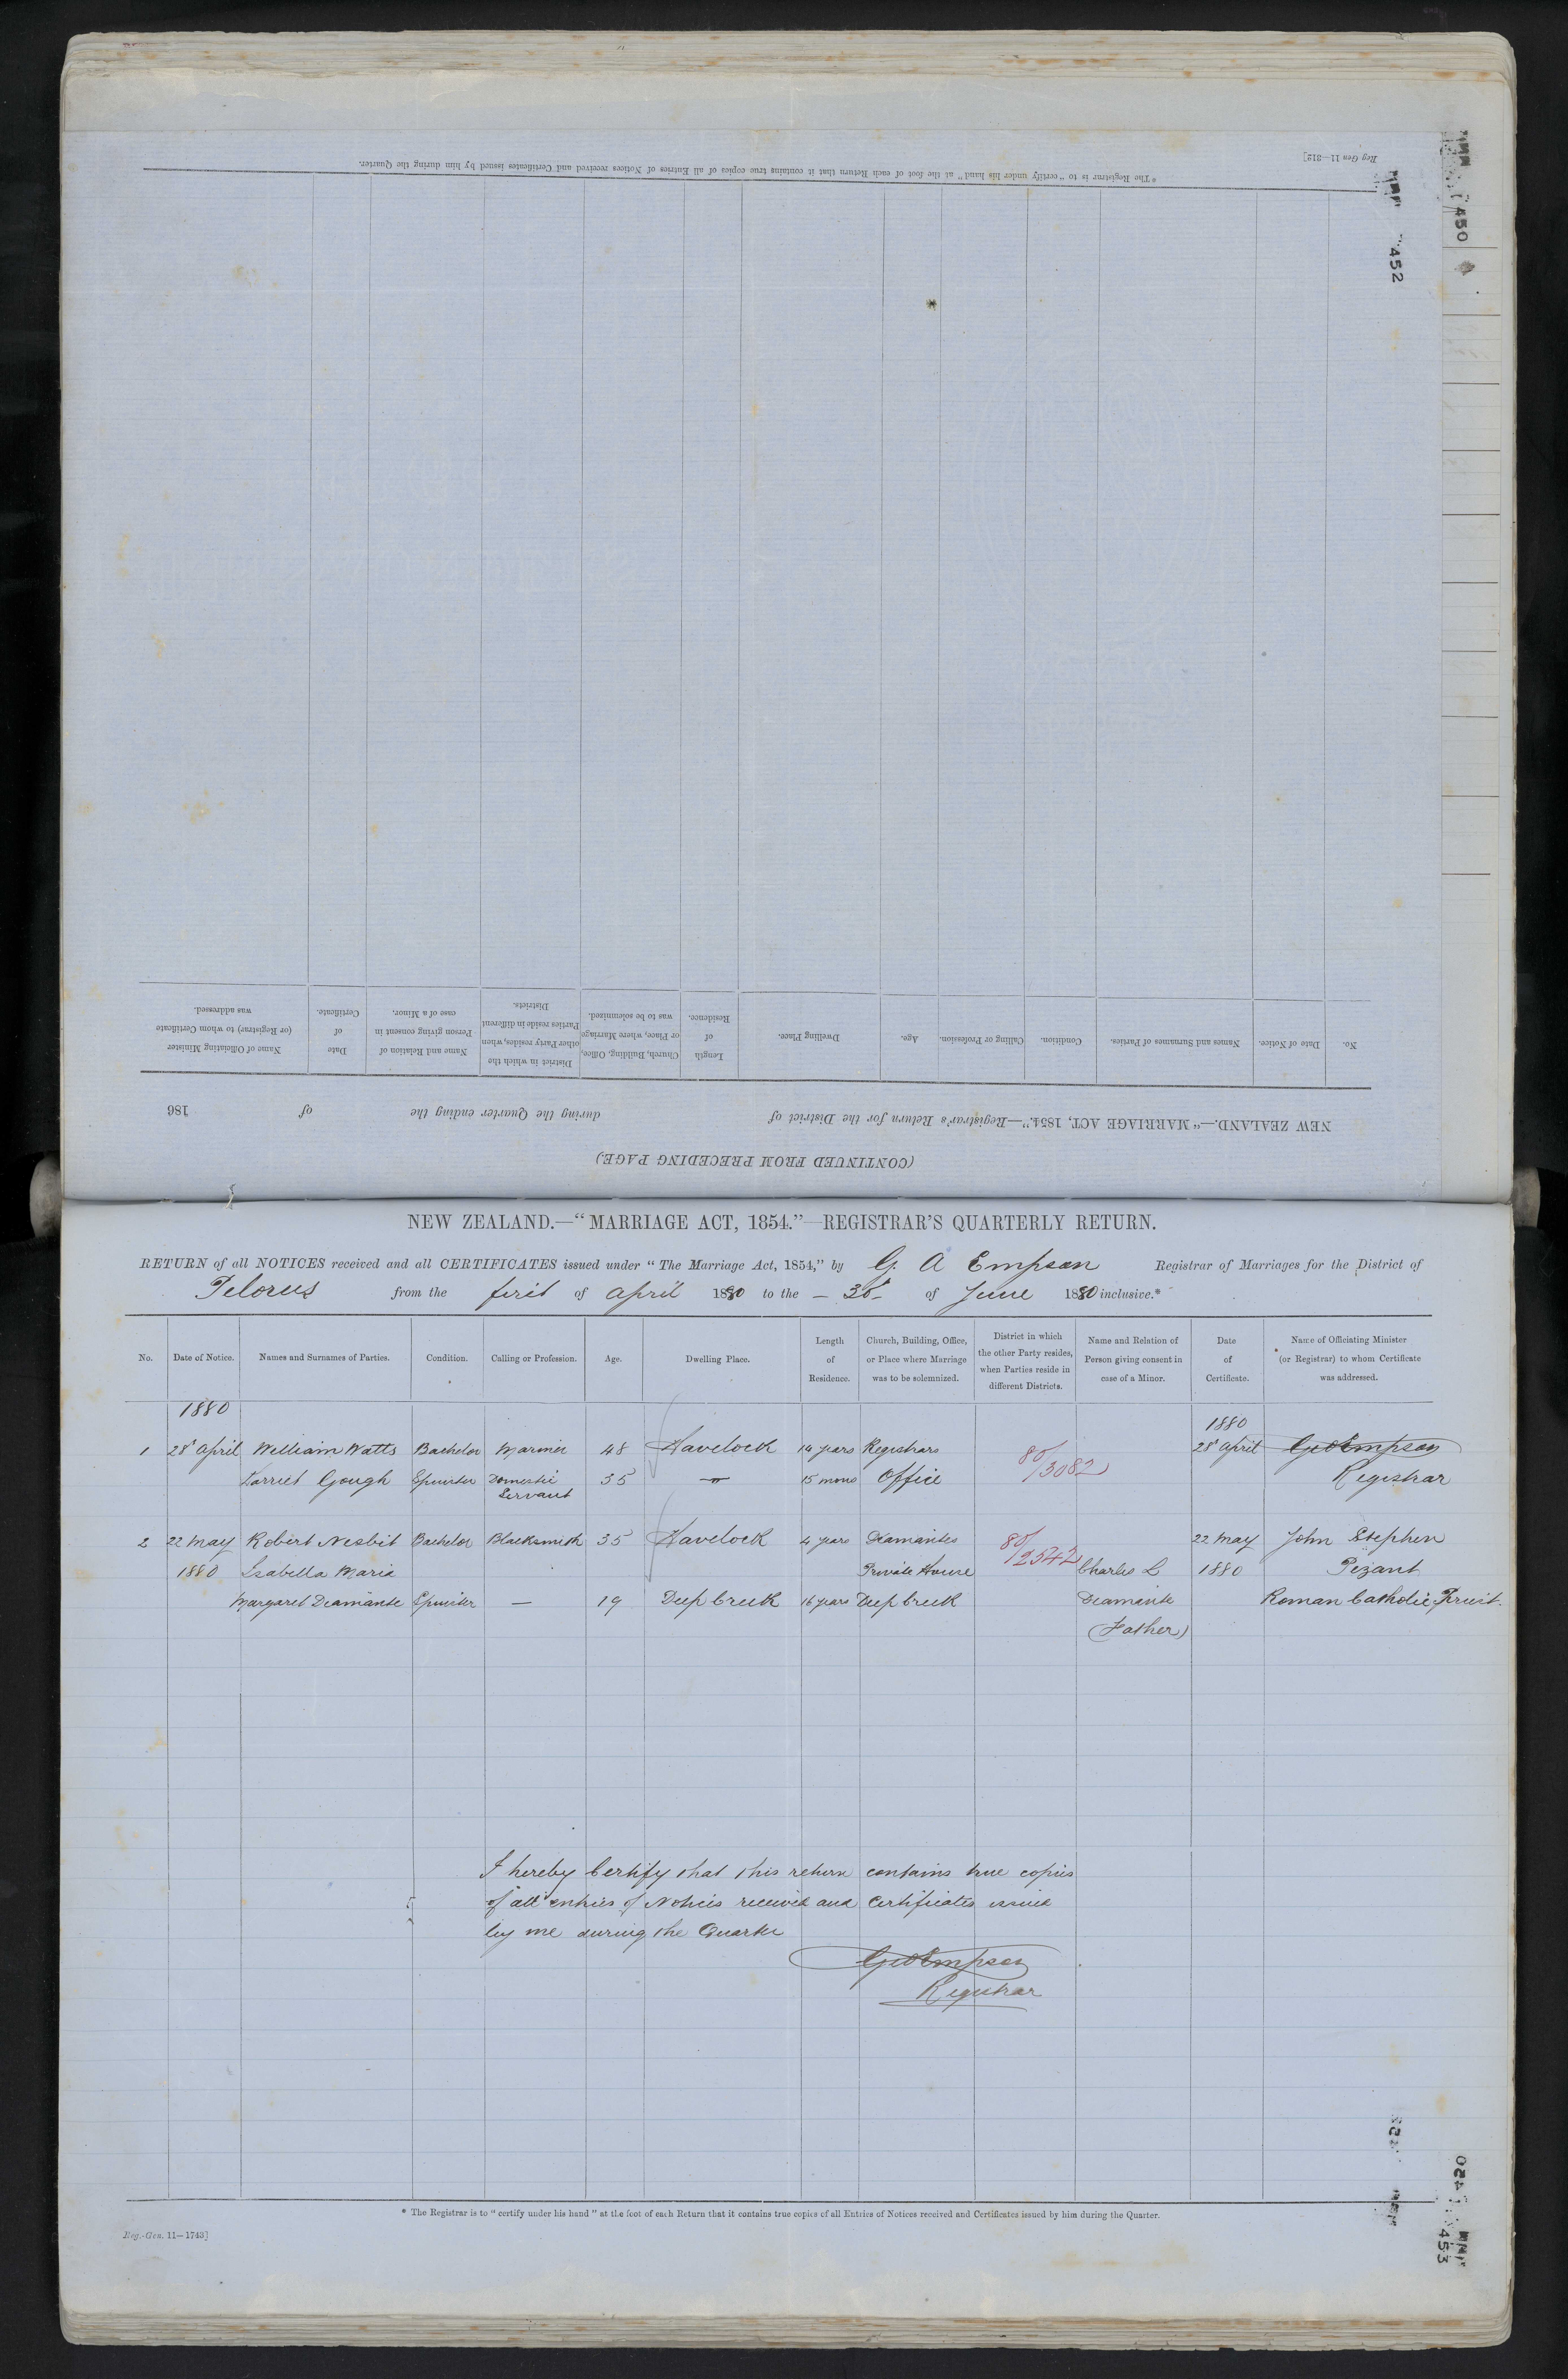 *The Registrar is to "certify under his hand" at the foot of each Return that it contains true copies of all Entries of Notices received and Certificates issued by him during the Quarter.
Reg Gen 11—312]
450
452
No.
Date of Notice.
Names and Surnames of Parties.
Condition.
Calling or Profession.
Age.
Dwelling Place.
Length
of
Residence.
Church, Building, Office,
or Place, where Marriage
was to be solemnized.
District in which the
other Party resides, when
Parties reside in different
Districts.
Name and Relation of
Person giving consent in
case of a Minor.
Date
of
Certificate.
Name of Officiating Minister
(or Registrar) to whom Certificate
was addressed.
NEW ZEALAND.—"MARRIAGE ACT, 1854."—Registrar's Return for the District of during the Quarter ending the of 186
(CONTINUED FROM PRECEDING PAGE.)
NEW ZEALAND.—"MARRIAGE ACT, 1854."—REGISTRAR'S QUARTERLY RETURN.
RETURN of all NOTICES received and all CERTIFICATES issued under "The Marriage Act, 1854," by G. A Empson Registrar of Marriages for the District of
Pelorus from the first of April 1880 to the – 30 – of June 1880 inclusive.*
No.
Date of Notice.
Names and Surnames of Parties.
Condition.
Calling or Profession.
Age.
Dwelling Place.
Length
of
Residence.
Church, Building, Office,
or Place where Marriage
was to be solemnized.
District in which
the other Party resides,
when Parties reside in
different Districts.
Name and Relation of
Person giving consent in
case of a Minor.
Date
of
Certificate.
Name of Officiating Minister
(or Registrar) to whom Certificate
was addressed.
1880
1880
1 28 April William Watts Bachelor Mariner 48 Havelock 14 years Registrars 80/3082 28 April GA Empson
Harriet Gough Spinster Domestic 35 — " — 15 mons Office Registrar
Servant
2 22 May Robert Nesbit Bachelor Blacksmith 35 Havelock 4 years Diamantes 80/2542 22 May John Stephen
1880 Isabella Maria Private House Charles L 1880 Pezant
Margaret Diamante Spinster — 19 Deep Creek 16 years Deep Creek Diamante Roman Catholic Priest.
(Father)
I hereby Certify that this return contains true copies
of all entries of Notices received and Certificates issued
by me during the Quarter
GA Empson
Registrar
* The Registrar is to "certify under his hand" at the foot of each Return that it contains true copies of all Entries of Notices received and Certificates issued by him during the Quarter.
Reg.-Gen. 11—1743]
450
453